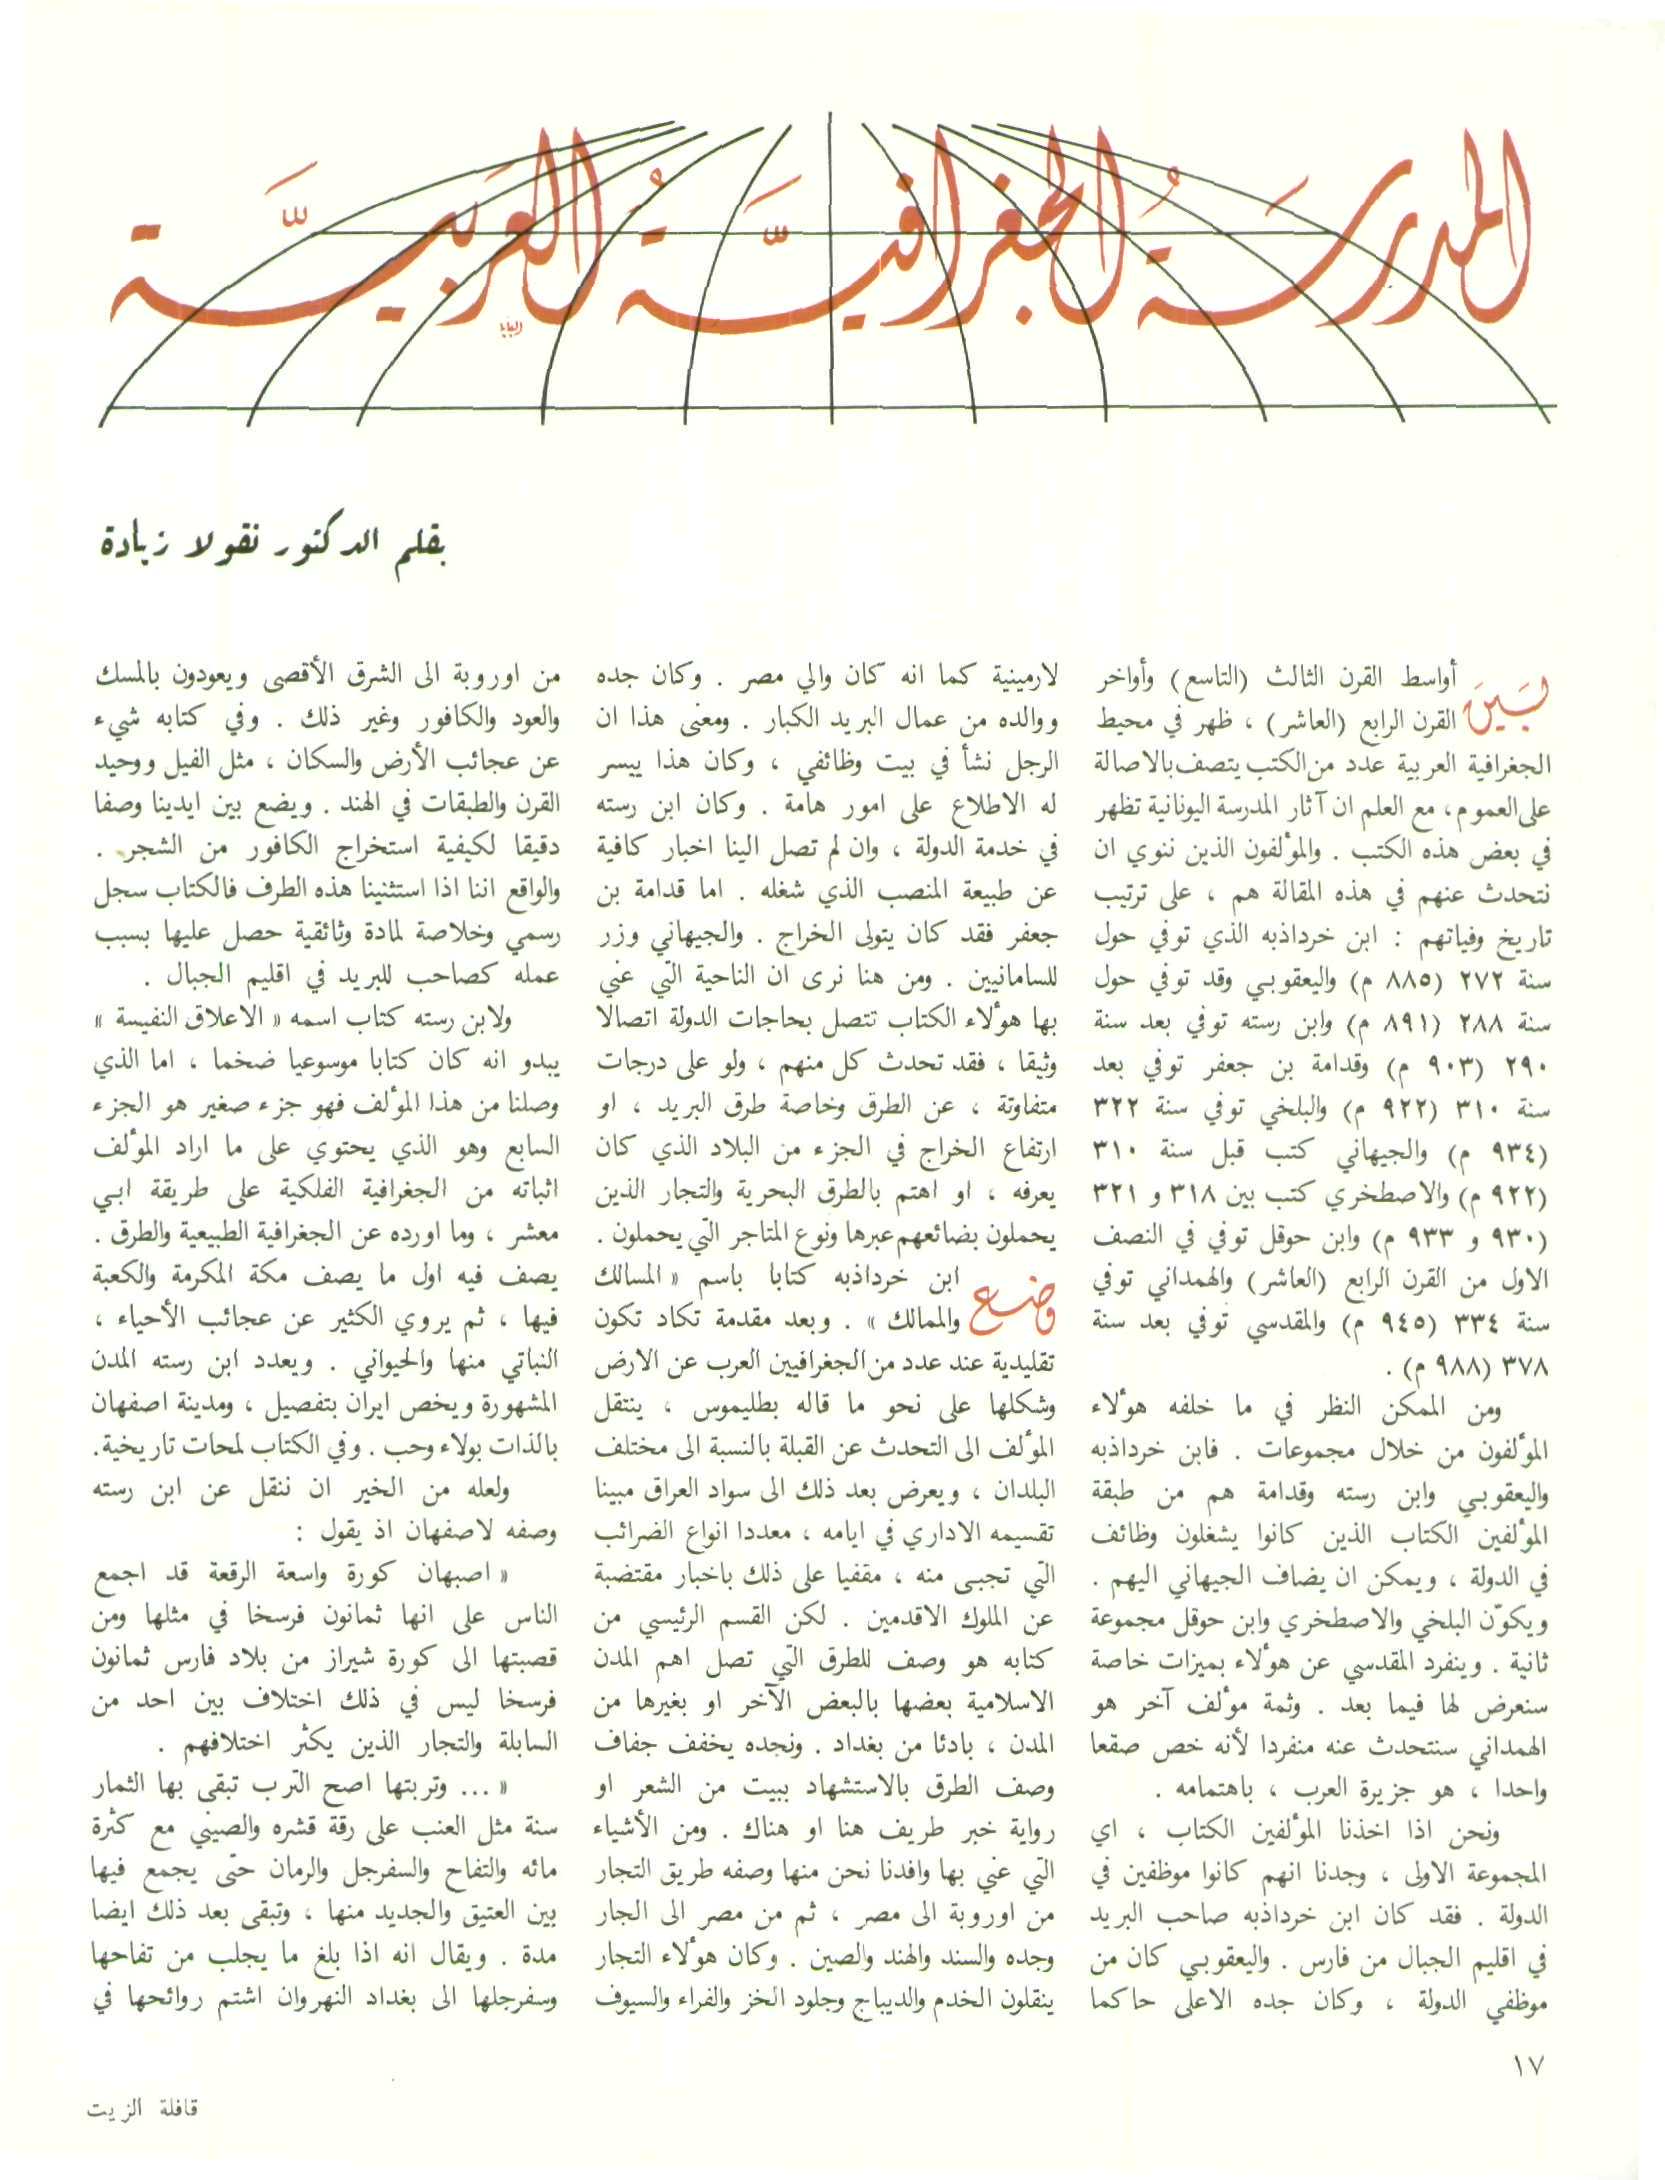 المدرسة الجغرافية العربية
بقلم الدكتور نقولا زيادة
بين أواسط القرن الثالث (التاسع) وأواخر
القرن الرابع (العاشر) ، ظهر في محيط
الجغرافية العربية عدد من الكتب يتصف بالاصالة
على العموم، مع العلم ان آثار المدرسة اليونانية تظهر
في بعض هذه الكتب . والمؤلفون الذين ننوي ان
نتحدث عنهم في هذه المقالة هم ، على ترتيب
تاريخ وفياتهم : ابن خرداذبه الذي توفي حول
سنة ٢٧٢ (٨٨٥ م) واليعقوبي وقد توفي حول
سنة ٢٨٨ (٨٩١ م) وابن رسته توفي بعد سنة
٢٩٠ (٩٠٣ م) وقدامة بن جعفر توفي بعد
سنة ٣١٠ (٩٢٢ م) والبلخي توفي سنة ٣٢٢
(٩٣٤ م) والجيهاني كتب قبل سنة ٣١٠
(٩٢٢ م) والاصطخري كتب بين ٣١٨ و ٣٢١
(٩٣٠ و ٩٣٣ م) وابن حوقل توفي في النصف
الاول من القرن الرابع (العاشر) والهمداني توفي
سنة ٣٣٤ (٩٤٥ م) والمقدسي توفي بعد سنة
٣٧٨ (٩٨٨ م) .
ومن الممكن النظر في ما خلفه هؤلاء
المؤلفون من خلال مجموعات . فابن خرداذبه
واليعقوبي وابن رسته وقدامة هم من طبقة
المؤلفين الكتاب الذين كانوا يشغلون وظائف
في الدولة ، ويمكن ان يضاف الجيهاني اليهم .
ويكوّن البلخي والاصطخري وابن حوقل مجموعة
ثانية . وينفرد المقدسي عن هؤلاء بميزات خاصة
سنعرض لها فيما بعد . وثمة مؤلف آخر هو
الهمداني سنتحدث عنه منفردا لأنه خص صقعا
واحدا ، هو جزيرة العرب ، باهتمامه .
ونحن اذا اخذنا المؤلفين الكتاب ، اي
المجموعة الاولى ، وجدنا انهم كانوا موظفين في
الدولة . فقد كان ابن خرداذبه صاحب البريد
في اقليم الجبال من فارس . واليعقوبي كان من
موظفي الدولة ، وكان جده الاعلى حاكما
لارمينية كما انه كان والي مصر . وكان جده
ووالده من عمال البريد الكبار . ومعنى هذا ان
الرجل نشأ في بيت وظائفي ، وكان هذا ييسر
له الاطلاع على امور هامة . وكان ابن رسته
في خدمة الدولة ، وان لم تصل الينا اخبار كافية
عن طبيعة المنصب الذي شغله . اما قدامة بن
جعفر فقد كان يتولى الخراج . والجيهاني وزر
للسامانيين . ومن هنا نرى ان الناحية التي عني
بها هؤلاء الكتاب تتصل بحاجات الدولة اتصالا
وثيقا ، فقد تحدث كل منهم ، ولو على درجات
متفاوتة ، عن الطرق وخاصة طرق البريد ، او
ارتفاع الخراج في الجزء من البلاد الذي كان
يعرفه ، او اهتم بالطرق البحرية والتجار الذين
يحملون بضائعهم عبرها ونوع المتاجر التي يحملون .
وضع ابن خرداذبه كتابا باسم « المسالك
والممالك » . وبعد مقدمة تكاد تكون
تقليدية عند عدد من الجغرافيين العرب عن الارض
وشكلها على نحو ما قاله بطليموس ، ينتقل
المؤلف الى التحدث عن القبلة بالنسبة الى مختلف
البلدان ، ويعرض بعد ذلك الى سواد العراق مبينا
تقسيمه الاداري في ايامه ، معددا انواع الضرائب
التي تجبى منه ، مقفيا على ذلك باخبار مقتضبة
عن الملوك الاقدمين . لكن القسم الرئيسي من
كتابه هو وصف للطرق التي تصل اهم المدن
الاسلامية بعضها بالبعض الآخر او بغيرها من
المدن ، بادئا من بغداد . ونجده يخفف جفاف
وصف الطرق بالاستشهاد ببيت من الشعر او
رواية خبر طريف هنا او هناك . ومن الأشياء
التي عني بها وافدنا نحن منها وصفه طريق التجار
من اوروبة الى مصر ، ثم من مصر الى الجار
وجده والسند والهند والصين . وكان هؤلاء التجار
ينقلون الخدم والديباج وجلود الخز والفراء والسيوف
من اوروبة الى الشرق الأقصى ويعودون بالمسك
والعود والكافور وغير ذلك . وفي كتابه شيء
عن عجائب الأرض والسكان ، مثل الفيل ووحيد
القرن والطبقات في الهند . ويضع بين ايدينا وصفا
دقيقا لكيفية استخراج الكافور من الشجر .
والواقع اننا اذا استثنينا هذه الطرف فالكتاب سجل
رسمي وخلاصة لمادة وثائقية حصل عليها بسبب
عمله كصاحب للبريد في اقليم الجبال .
ولابن رسته كتاب اسمه « الاعلاق النفيسة »
يبدو انه كان كتابا موسوعيا ضخما ، اما الذي
وصلنا من هذا المؤلف فهو جزء صغير هو الجزء
السابع وهو الذي يحتوي على ما اراد المؤلف
اثباته من الجغرافية الفلكية على طريقة ابي
معشر ، وما اورده عن الجغرافية الطبيعية والطرق .
يصف فيه اول ما يصف مكة المكرمة والكعبة
فيها ، ثم يروي الكثير عن عجائب الأحياء ،
النباتي منها والحيواني . ويعدد ابن رسته المدن
المشهورة ويخص ايران بتفصيل ، ومدينة اصفهان
بالذات بولاء وحب . وفي الكتاب لمحات تاريخية.
ولعله من الخير ان ننقل عن ابن رسته
وصفه لاصفهان اذ يقول :
« اصبهان كورة واسعة الرقعة قد اجمع
الناس على انها ثمانون فرسخا في مثلها ومن
قصبتها الى كورة شيراز من بلاد فارس ثمانون
فرسخا ليس في ذلك اختلاف بين احد من
السابلة والتجار الذين يكثر اختلافهم .
« ... وتربتها اصح الترب تبقى بها الثمار
سنة مثل العنب على رقة قشره والصيني مع كثرة
مائه والتفاح والسفرجل والرمان حتى يجمع فيها
بين العتيق والجديد منها ، وتبقى بعد ذلك ايضا
مدة . ويقال انه اذا بلغ ما يجلب من تفاحها
وسفرجلها الى بغداد النهروان اشتم روائحها في
١٧
قافلة الزيت